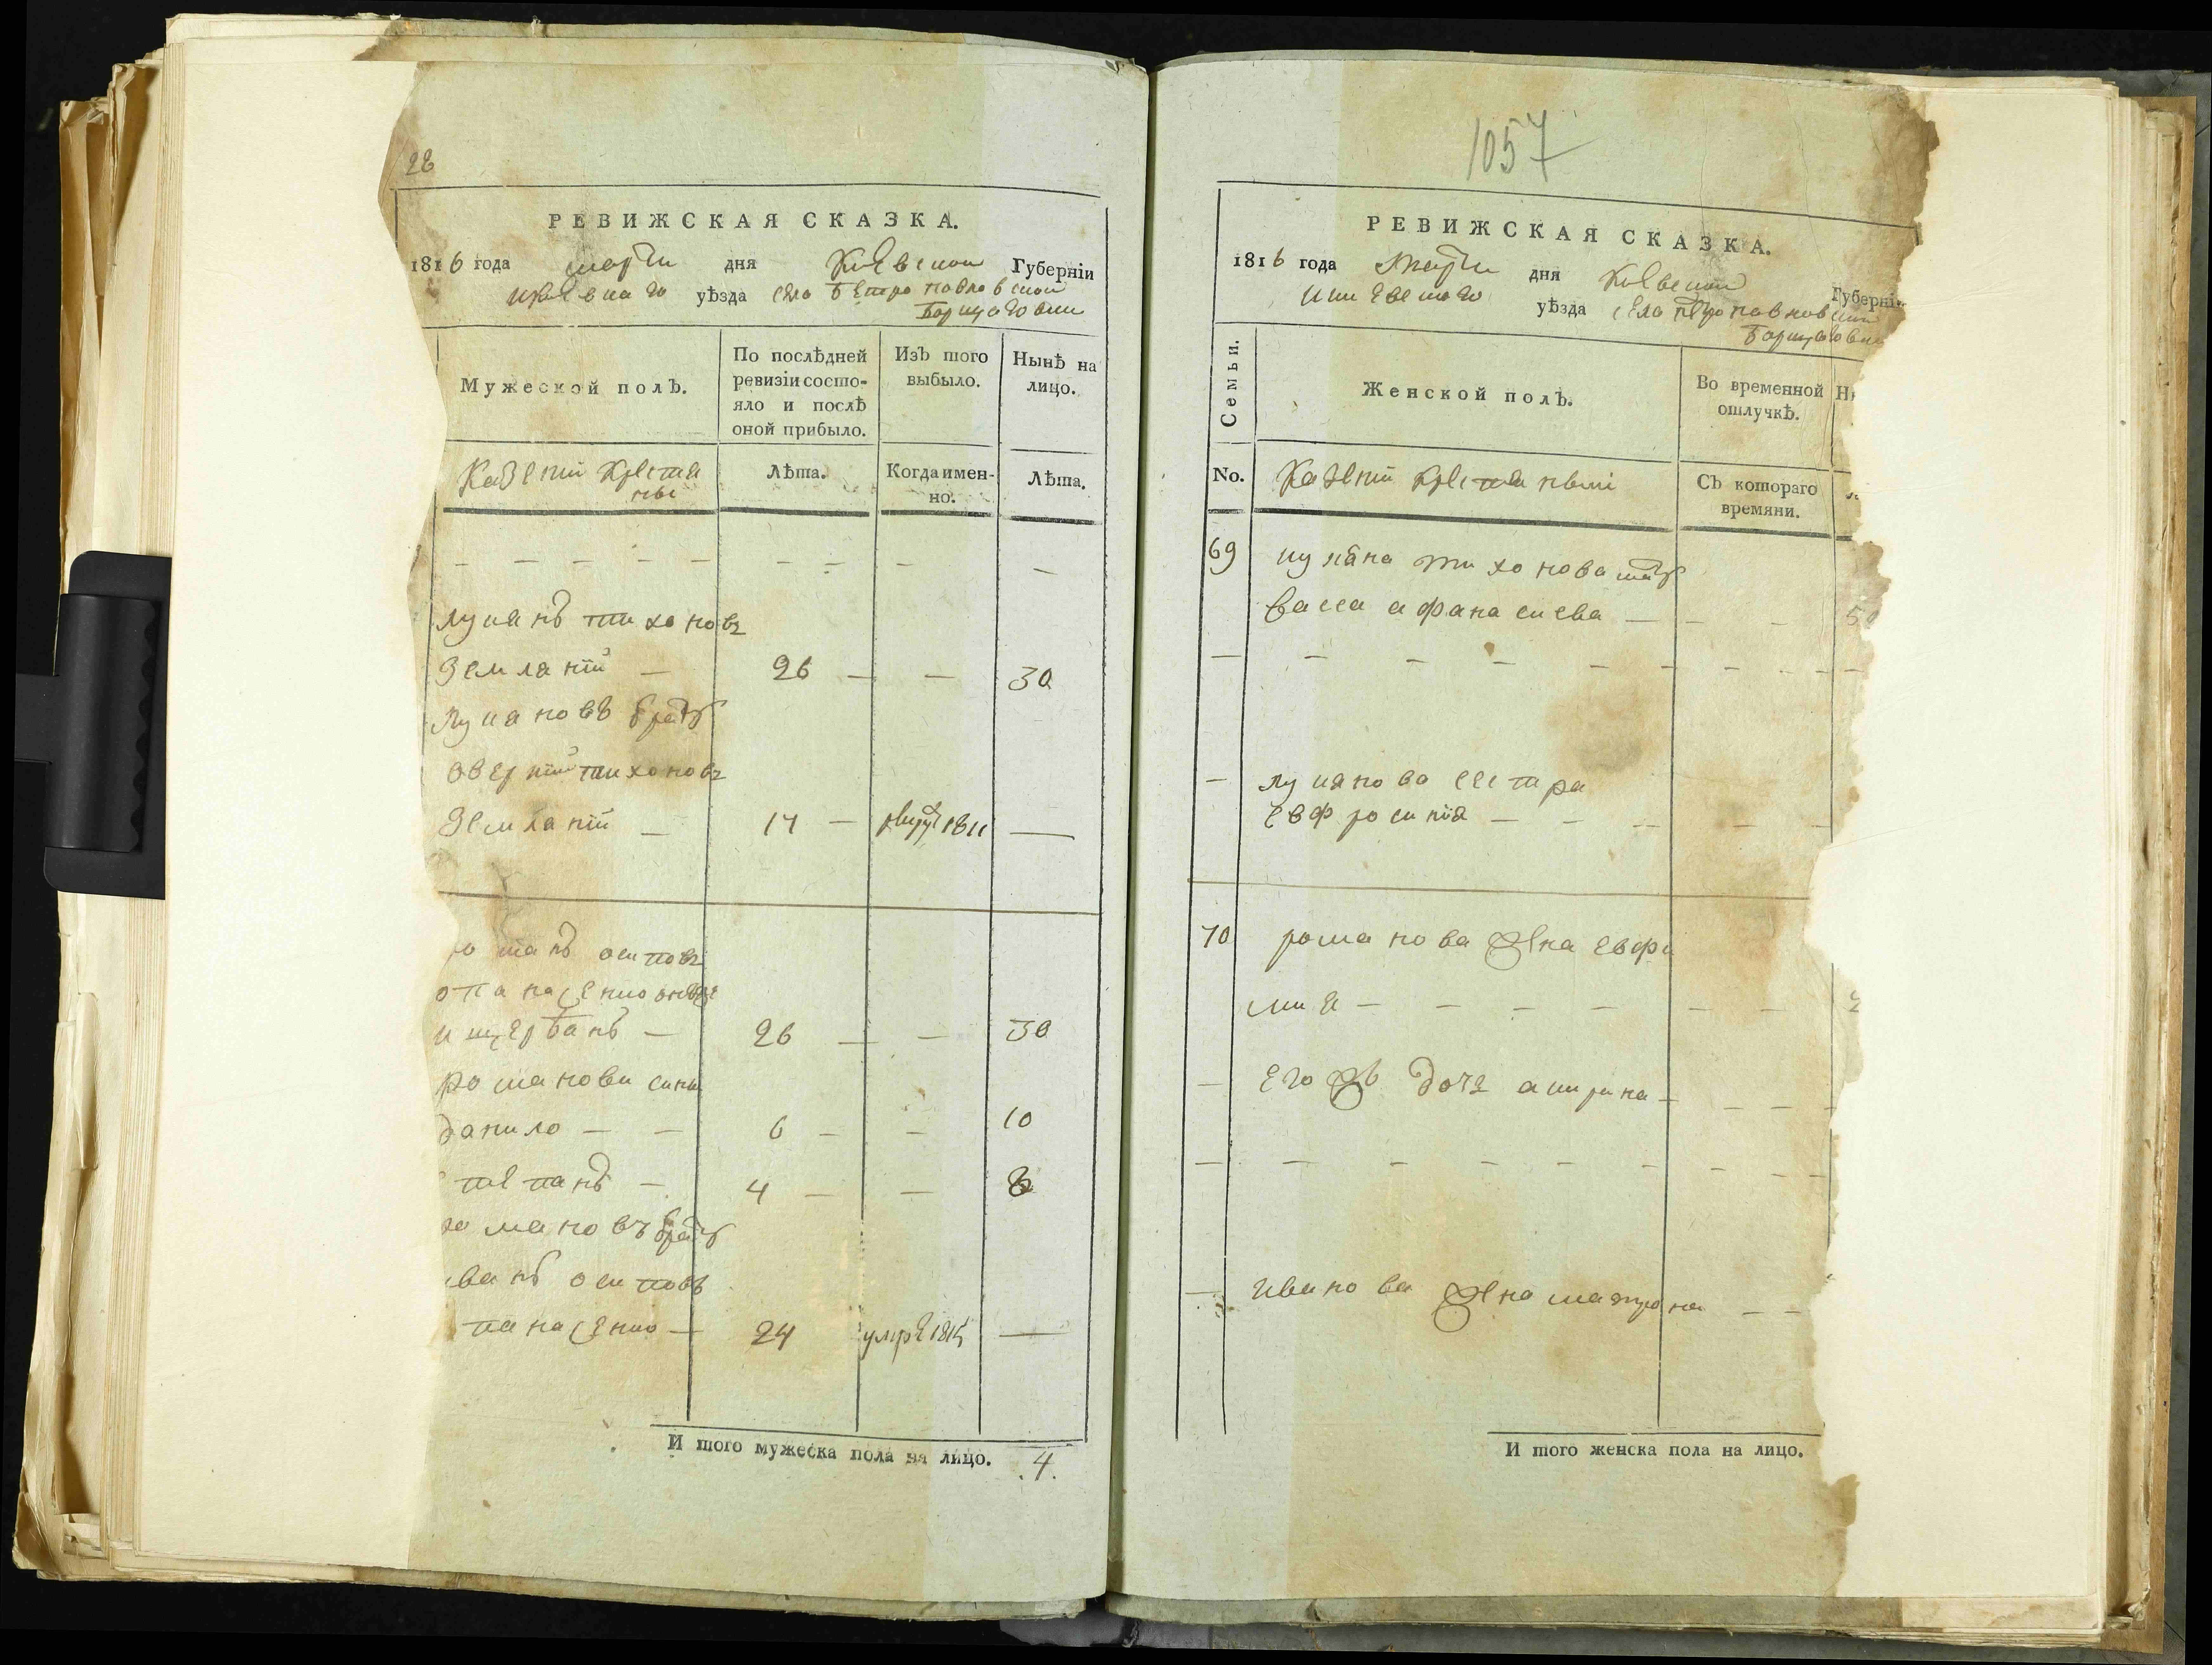 28
РЕВИЖСКАЯ СКАЗКА.
1816 года марта дня Киевской Губерніи
уѣзда села Петропавловской
Борщаговки
Мужеской полъ.
По послѣдней ревизіи состояло и послѣ оной прибыло.
Изъ того выбыло.
Нынѣ на лицо.
Казенніи крестяни
Лѣта.
Когда именно.
Лѣта.
— — — — — — — — —
Лукянъ тихоновъ
Землянiй — 26 — — 30
Лукяновъ братъ
Аверкій тихоновъ
Землянiй — 17 — 1811 —
романъ осиповъ
опанасенко
и щербанъ — 26 — — 30
романови сини
данило — — 6 — — 10
степанъ — 4 — — 8
романовъ братъ
иванъ осиповъ
панасенко — 24 умре 1815 —
И того мужеска пола на лицо. 4.
1057
РЕВИЖСКАЯ СКАЗКА.
1816 года марта дня Киевской Губерні
уѣзда села петропавловской
Борщаговки
Семьи.
Женской полъ.
Во временной отлучкѣ.
Н
No.
Казенніи крестянки
Съ котораго времяни.
69 лукяна тихонова мать
васса афанасиева — — — 5
— — — — — — — — —
— лукянова сестра
евфросиніа — — — — —
70 романова жена евфи
мия — — — — — —
— Его жъ дочь акирина — — — —
— — — — — — — — —
— Иванова жена матрона — —
И того женска пола на лицо.